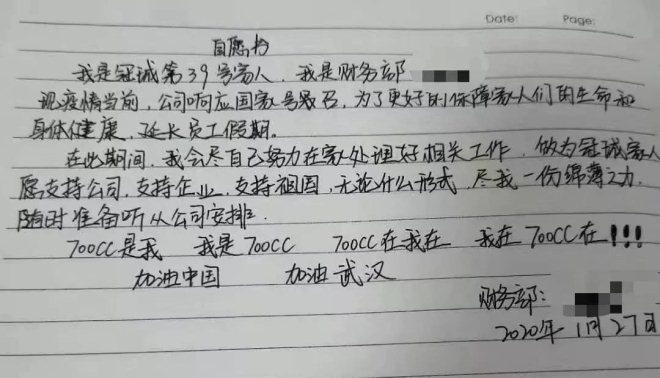 Date: Page:
自愿书
我是冠诚第39号家人,我是财务部
现疫情当前,公司响应国家号召,为了更好的保障家人们的生命和
身体健康,延长员工假期。
在此期间,我会尽自己努力在家处理好相关工作,做为冠诚家人
愿支持公司,支持企业,支持祖国,无论什么形式,尽我一份绵薄之力,
随时准备听从公司安排.
700CC是我 我是700CC 700CC在我在 我在700CC在!!!
加油中国 加油武汉
财务部:
2020年1月27日